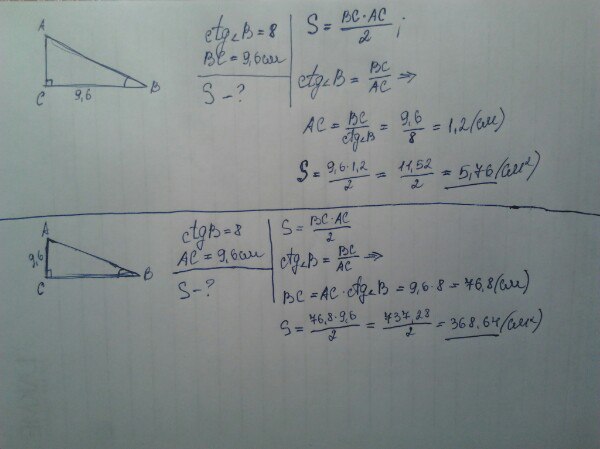 A
C 9,6 B
ctg∠B = 8
BC = 9,6 см
S - ?
S = BC·AC/2 ;
ctg∠B = BC/AC ⇒
AC = BC/ctg∠B = 9,6/8 = 1,2 (см)
S = 9,6·1,2/2 = 11,52/2 = 5,76 (см²)
A
9,6
C B
ctgB = 8
AC = 9,6 см
S - ?
S = BC·AC/2
ctg∠B = BC/AC ⇒
BC = AC·ctg∠B = 9,6·8 = 76,8 (см)
S = 76,8·9,6/2 = 737,28/2 = 368,64 (см²)